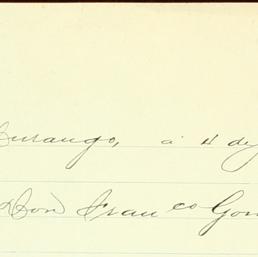 Durango, á 4 de
Don Franco Gon